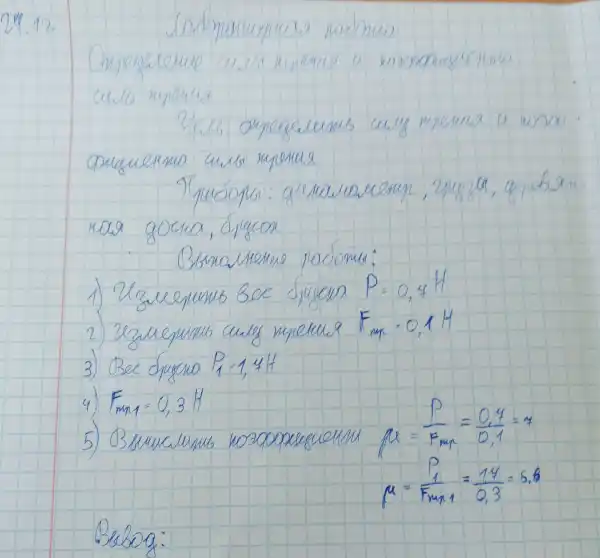 29.12
Лабораторная работа
Определение силы трения и коэффициента
силы трения
Цель: определить силу трения и коэф-
фициента силы трения
Приборы: динамометр, грузы, деревян-
ная доска, брусок
Выполнение работы:
1) Измерить вес бруска P = 0,7 H
2) Измерить силу трения Fтр = 0,1 H
3) Вес бруска P1 = 1,7 H
4) Fтр1 = 0,3 H
5) Вычислить коэффициент μ = P/Fтр = 0,7/0,1 = 7
μ = P1/Fтр1 = 17/0,3 = 5,6
Вывод: